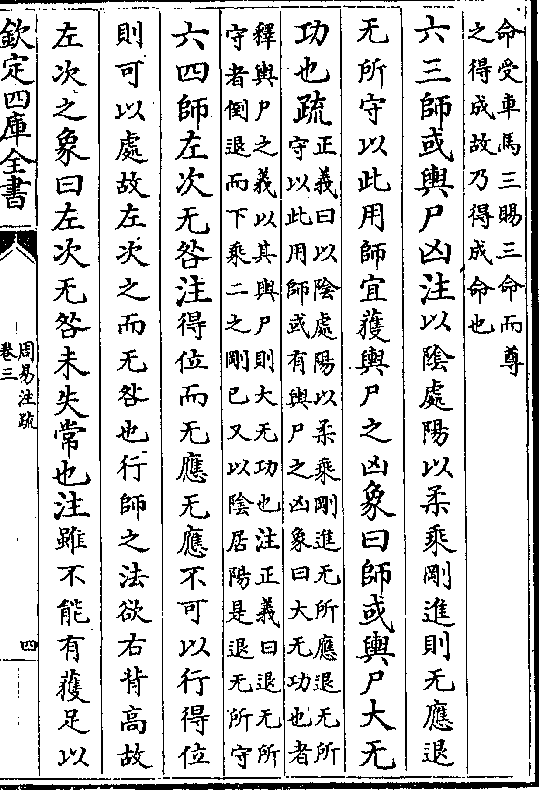 命受車馬三賜三命而尊
之得成故乃得成命也
六三師或輿尸凶注以陰處陽以柔乘剛進則无應退
无所守以此用師宜獲輿尸之凶象曰師或輿尸大无
功也疏
正義曰以陰處陽以柔乘剛進无所應退无所
守以此用師或有輿尸之凶象曰大无功也者
釋輿尸之義以其輿尸則大无功也注正義曰退无所
守者倒退而下乘二之剛已又以陰居陽是退无所守
六四師左次无咎注得位而无應无應不可以行得位
則可以處故左次之而无咎也行師之法欲右背高故
左次之象曰左次无咎未失常也注雖不能有獲足以
欽定四庫全書
周易注疏
卷三
四